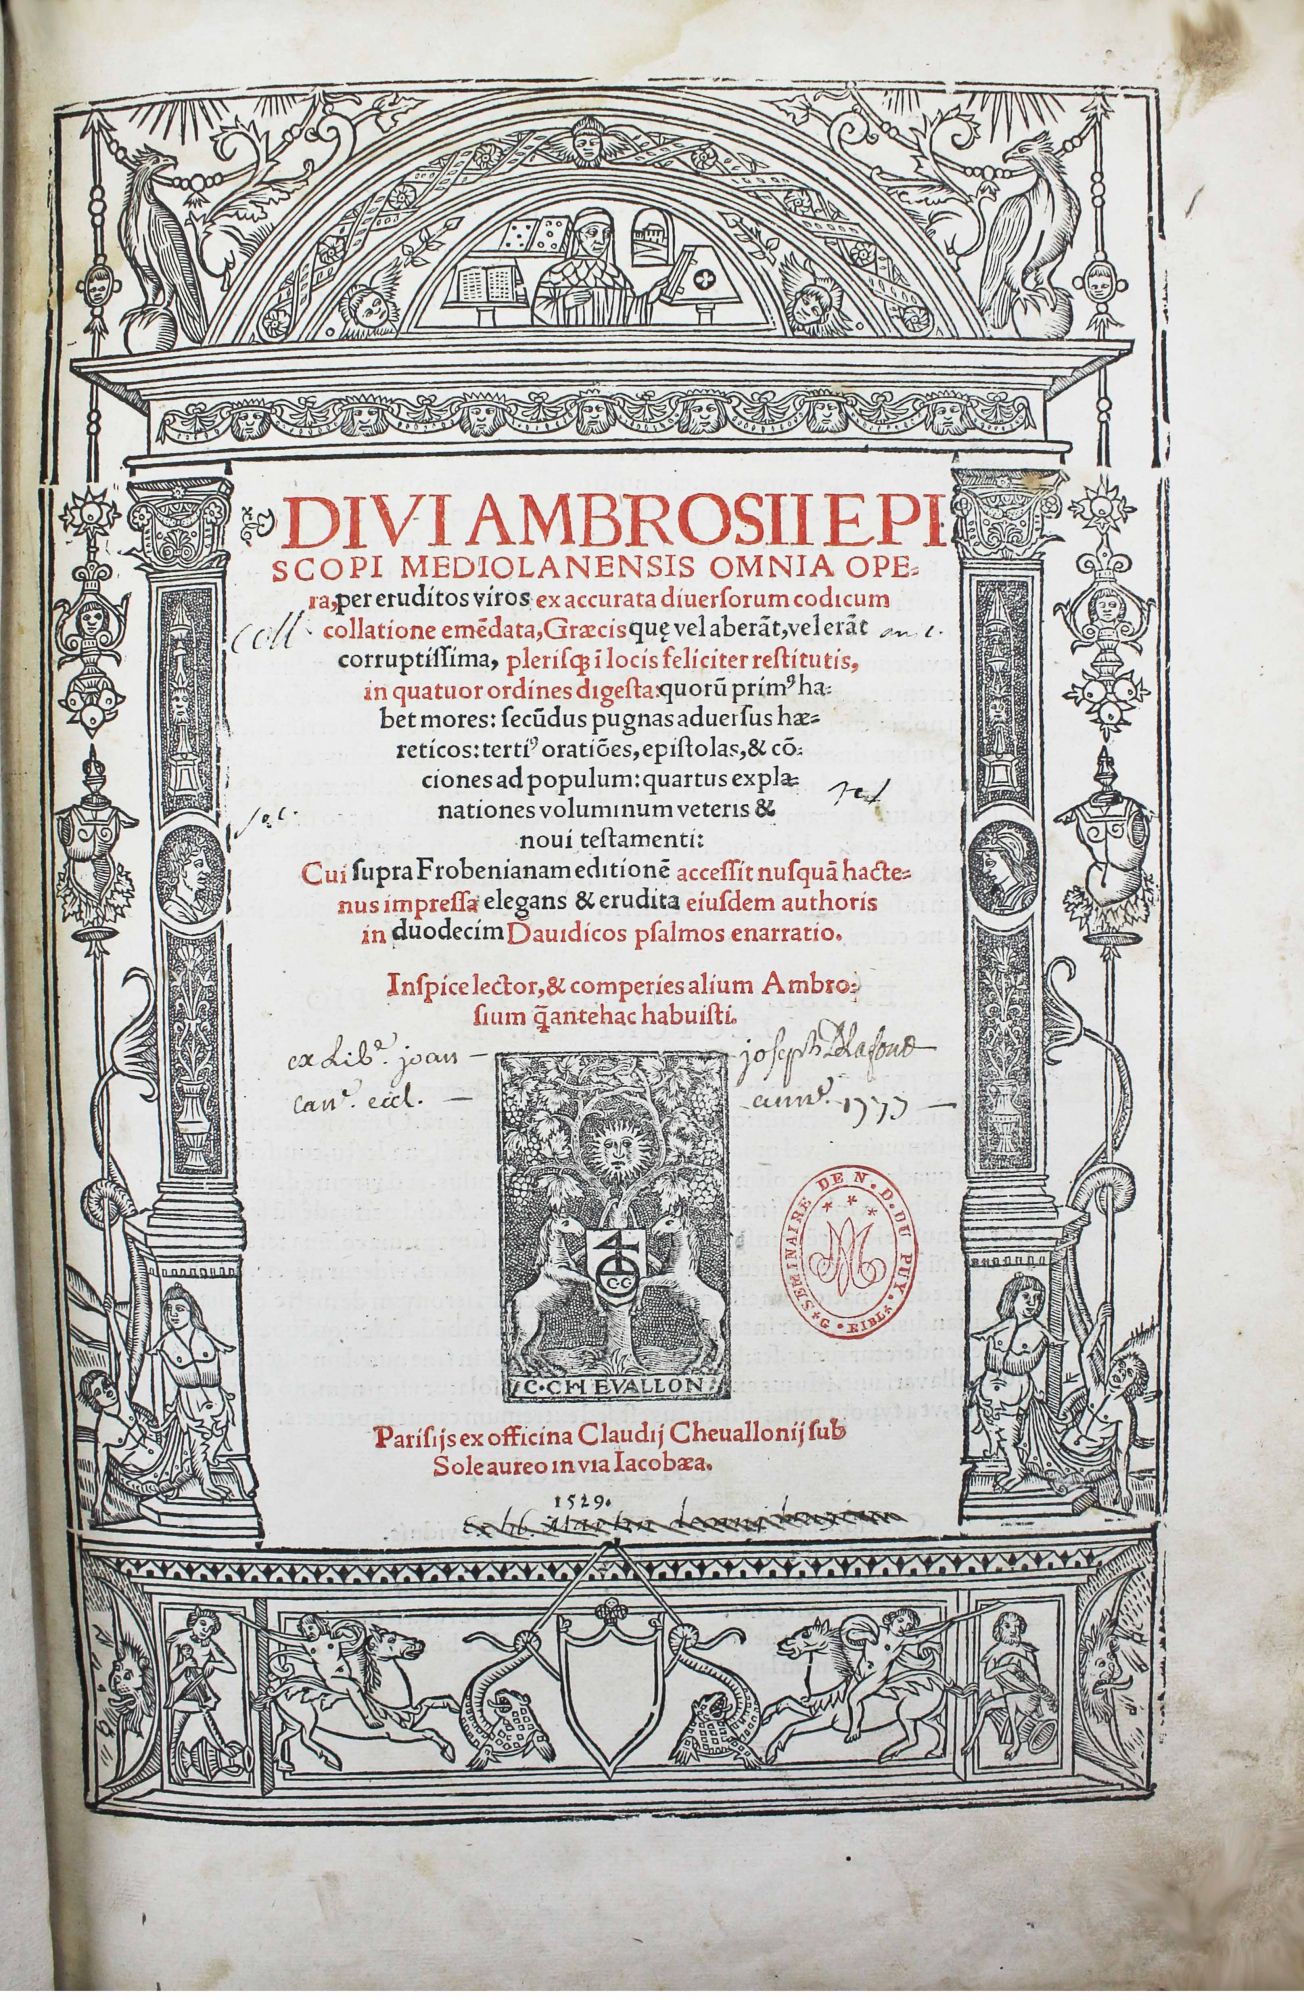 DIVI AMBROSII EPI
SCOPI MEDIOLANENSIS OMNIA OPE-
ra, per eruditos viros ex accurata diuersorum codicum
collatione emẽdata, Græcis quę vel aberãt, vel erãt
corruptissima, plerisqꝫ ĩ locis feliciter restitutis,
in quatuor ordines digesta: quorũ primꝰ ha-
bet mores: secũdus pugnas aduersus hæ-
reticos: tertiꝰ oratiões, epistolas, & cõ-
ciones ad populum: quartus expla-
nationes voluminum veteris &
noui testamenti:
Cui supra Frobenianam editionẽ accessit nusquã hacte-
nus impressa elegans & erudita eiusdem authoris
in duodecim Dauidicos psalmos enarratio.
Inspice lector, & comperies alium Ambro-
sium q̃ antehac habuisti.
ex Lib. joan — joseph
can. eccl. — 1773 —
C·C
C·CHEVALLON
SEMINAIRE DE N.D. DU PUY. G. BIBL.
Parisijs ex officina Claudij Cheuallonij sub
Sole aureo in via Iacobæa.
1529.
Ex lib.